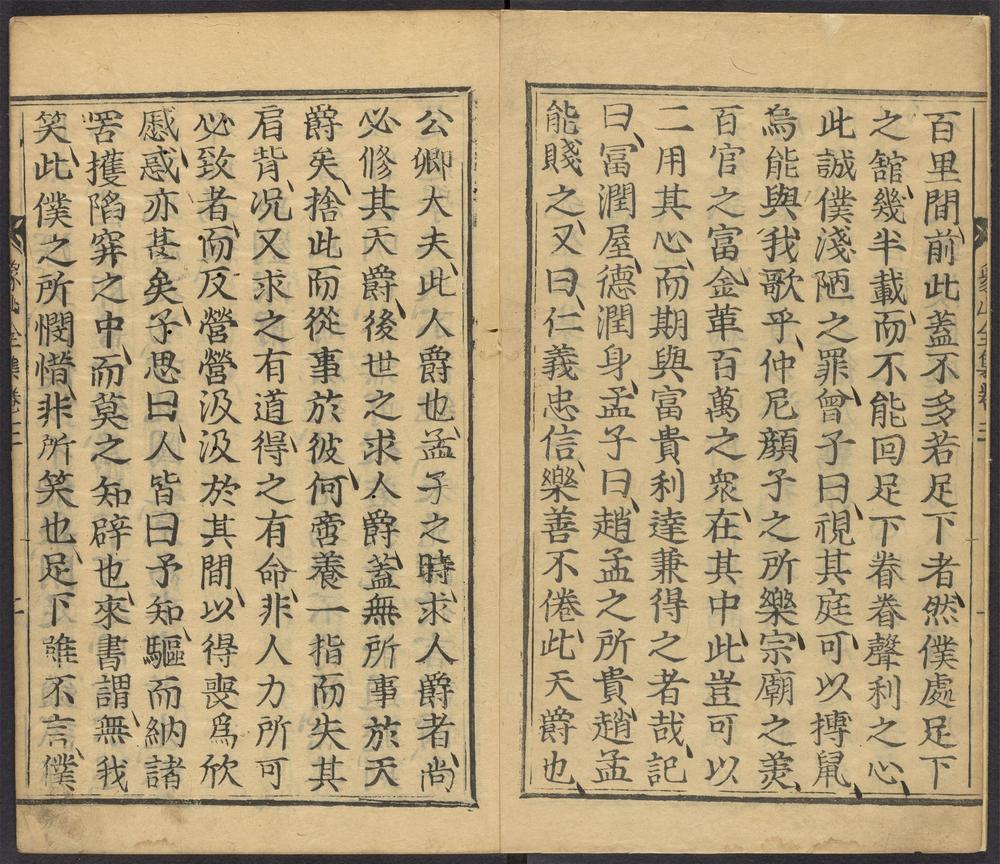 百里間前此蓋不多若足下者然僕處足下
之舘幾半載而不能回足下眷眷聲利之心
此誠僕淺陋之罪曾子曰視其庭可以搏鼠
烏能與我歌乎仲尼顏子之所樂宗廟之羙
百官之富金革百萬之衆在其中此豈可以
二用其心而期與富貴利達兼得之者哉記
曰冨潤屋德潤身孟子曰趙孟之所貴趙孟
能賤之又曰仁義忠信樂善不倦此天爵也
公卿大夫此人爵也孟子之時求人爵者尚
必修其天爵後世之求人爵蓋無所事於天
爵矣捨此而從事於彼何啻養一指而失其
肩背况又求之有道得之有命非人力所可
必致者而反營營汲汲於其間以得喪爲欣
慼惑亦甚矣子思曰人皆曰予知驅而納諸
罟擭陷穽之中而莫之知辟也來書謂無我
笑此僕之所憫惜非所笑也足下雖不言僕